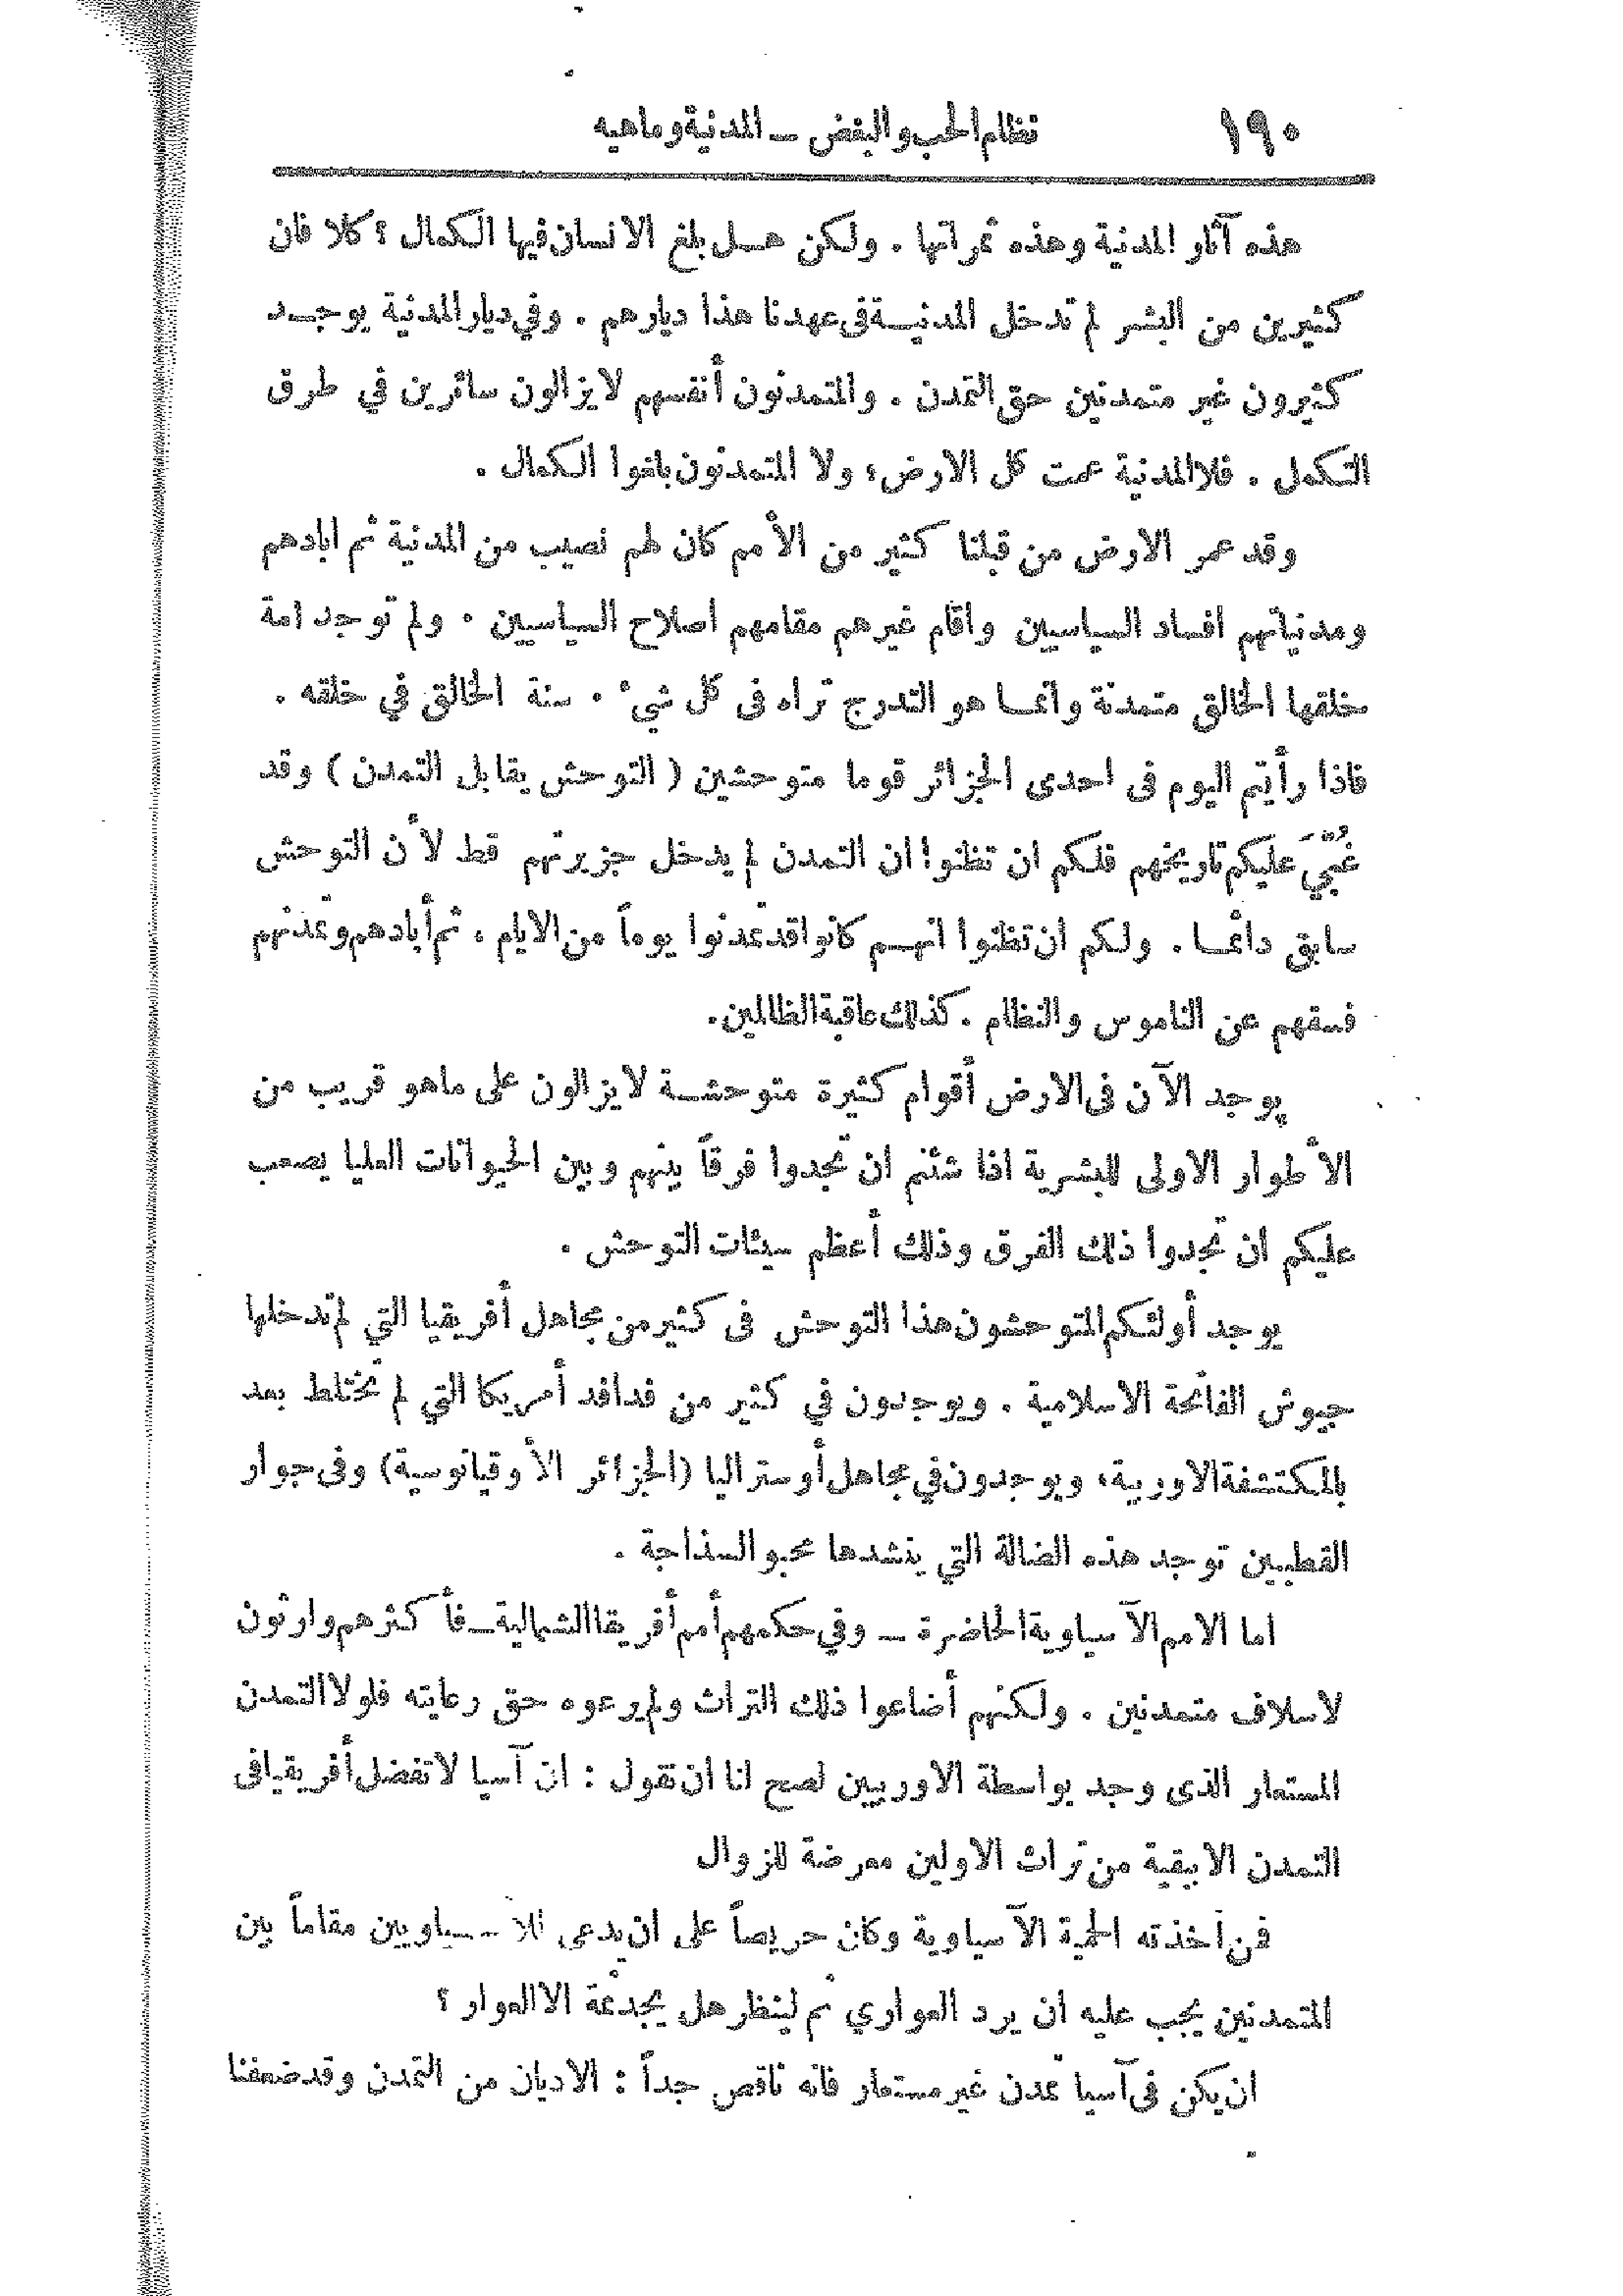 ١٩٠
نظام الحب والبغض ــ المدنية وماهيه
هذه آثار المدنية وهذه ثمراتها . ولكن هل بلغ الانسان فيها الكمال ؟ كلا فان
كثيرين من البشر لم تدخل المدنية فى عهدنا هذا ديارهم . وفي ديار المدنية يوجد
كثيرون غير متمدنين حق التمدن . والمتمدنون أنفسهم لا يزالون سائرين في طرق
التكمل . فلا المدنية عمت كل الارض؛ ولا المتمدنون بلغوا الكمال .
وقد عمر الارض من قبلنا كثير من الأمم كان لهم نصيب من المدنية ثم ابادهم
ومدنياتهم افساد السياسيين واقام غيرهم مقامهم اصلاح السياسيين . ولم توجد امة
خلقها الخالق متمدنة وانما هو التدرج تراه فى كل شيء . سنة الخالق في خلقه .
فاذا رأيتم اليوم فى احدى الجزائر قوما متوحشين ( التوحش يقابل التمدن ) وقد
غُبِّيَ عليكم تاريخهم فلكم ان تظنوا ان التمدن لم يدخل جزيرتهم قط لأن التوحش
سابق دائما . ولكم ان تظنوا انهم كانوا قد تمدنوا يوماً من الايام ، ثم أبادهم وتمدنهم
فسقهم عن الناموس والنظام . كذلك عاقبة الظالمين.
يوجد الآن فى الارض أقوام كثيرة متوحشة لا يزالون على ماهو قريب من
الأطوار الاولى للبشرية اذا شئتم ان تجدوا فرقاً بينهم وبين الحيوانات العليا يصعب
عليكم ان تجدوا ذلك الفرق وذلك أعظم سيئات التوحش .
يوجد أولئكم المتوحشون هذا التوحش فى كثير من مجاهل أفريقيا التي لم تدخلها
جيوش الفاتحة الاسلامية . ويوجدون في كثير من فدافد أمريكا التي لم تختلط بعد
بالمكتشفة الاوربية، ويوجدون في مجاهل أوستراليا (الجزائر الأوقيانوسية) وفى جوار
القطبين توجد هذه الضالة التي ينشدها محبو السذاجة .
اما الامم الآسياوية الحاضرة ــ وفي حكمهم أمم أفريقا الشمالية ــ فأكثرهم وارثون
لاسلاف متمدنين . ولكنهم أضاعوا ذلك التراث ولم يرعوه حق رعايته فلولا التمدن
المستعار الذى وجد بواسطة الاوربيين لصح لنا ان نقول : ان آسيا لا تفضل أفريقيا فى
التمدن الا ببقية من تراث الاولين معرضة للزوال
فمن أخذته الحمية الآسياوية وكان حريصاً على ان يدعى للآسياويين مقاماً بين
المتمدنين يجب عليه ان يرد العواري ثم لينظر هل يجد ثمة الا العوار ؟
ان يكن فى آسيا تمدن غير مستعار فانه ناقص جداً : الاديان من التمدن وقد ضعفنا